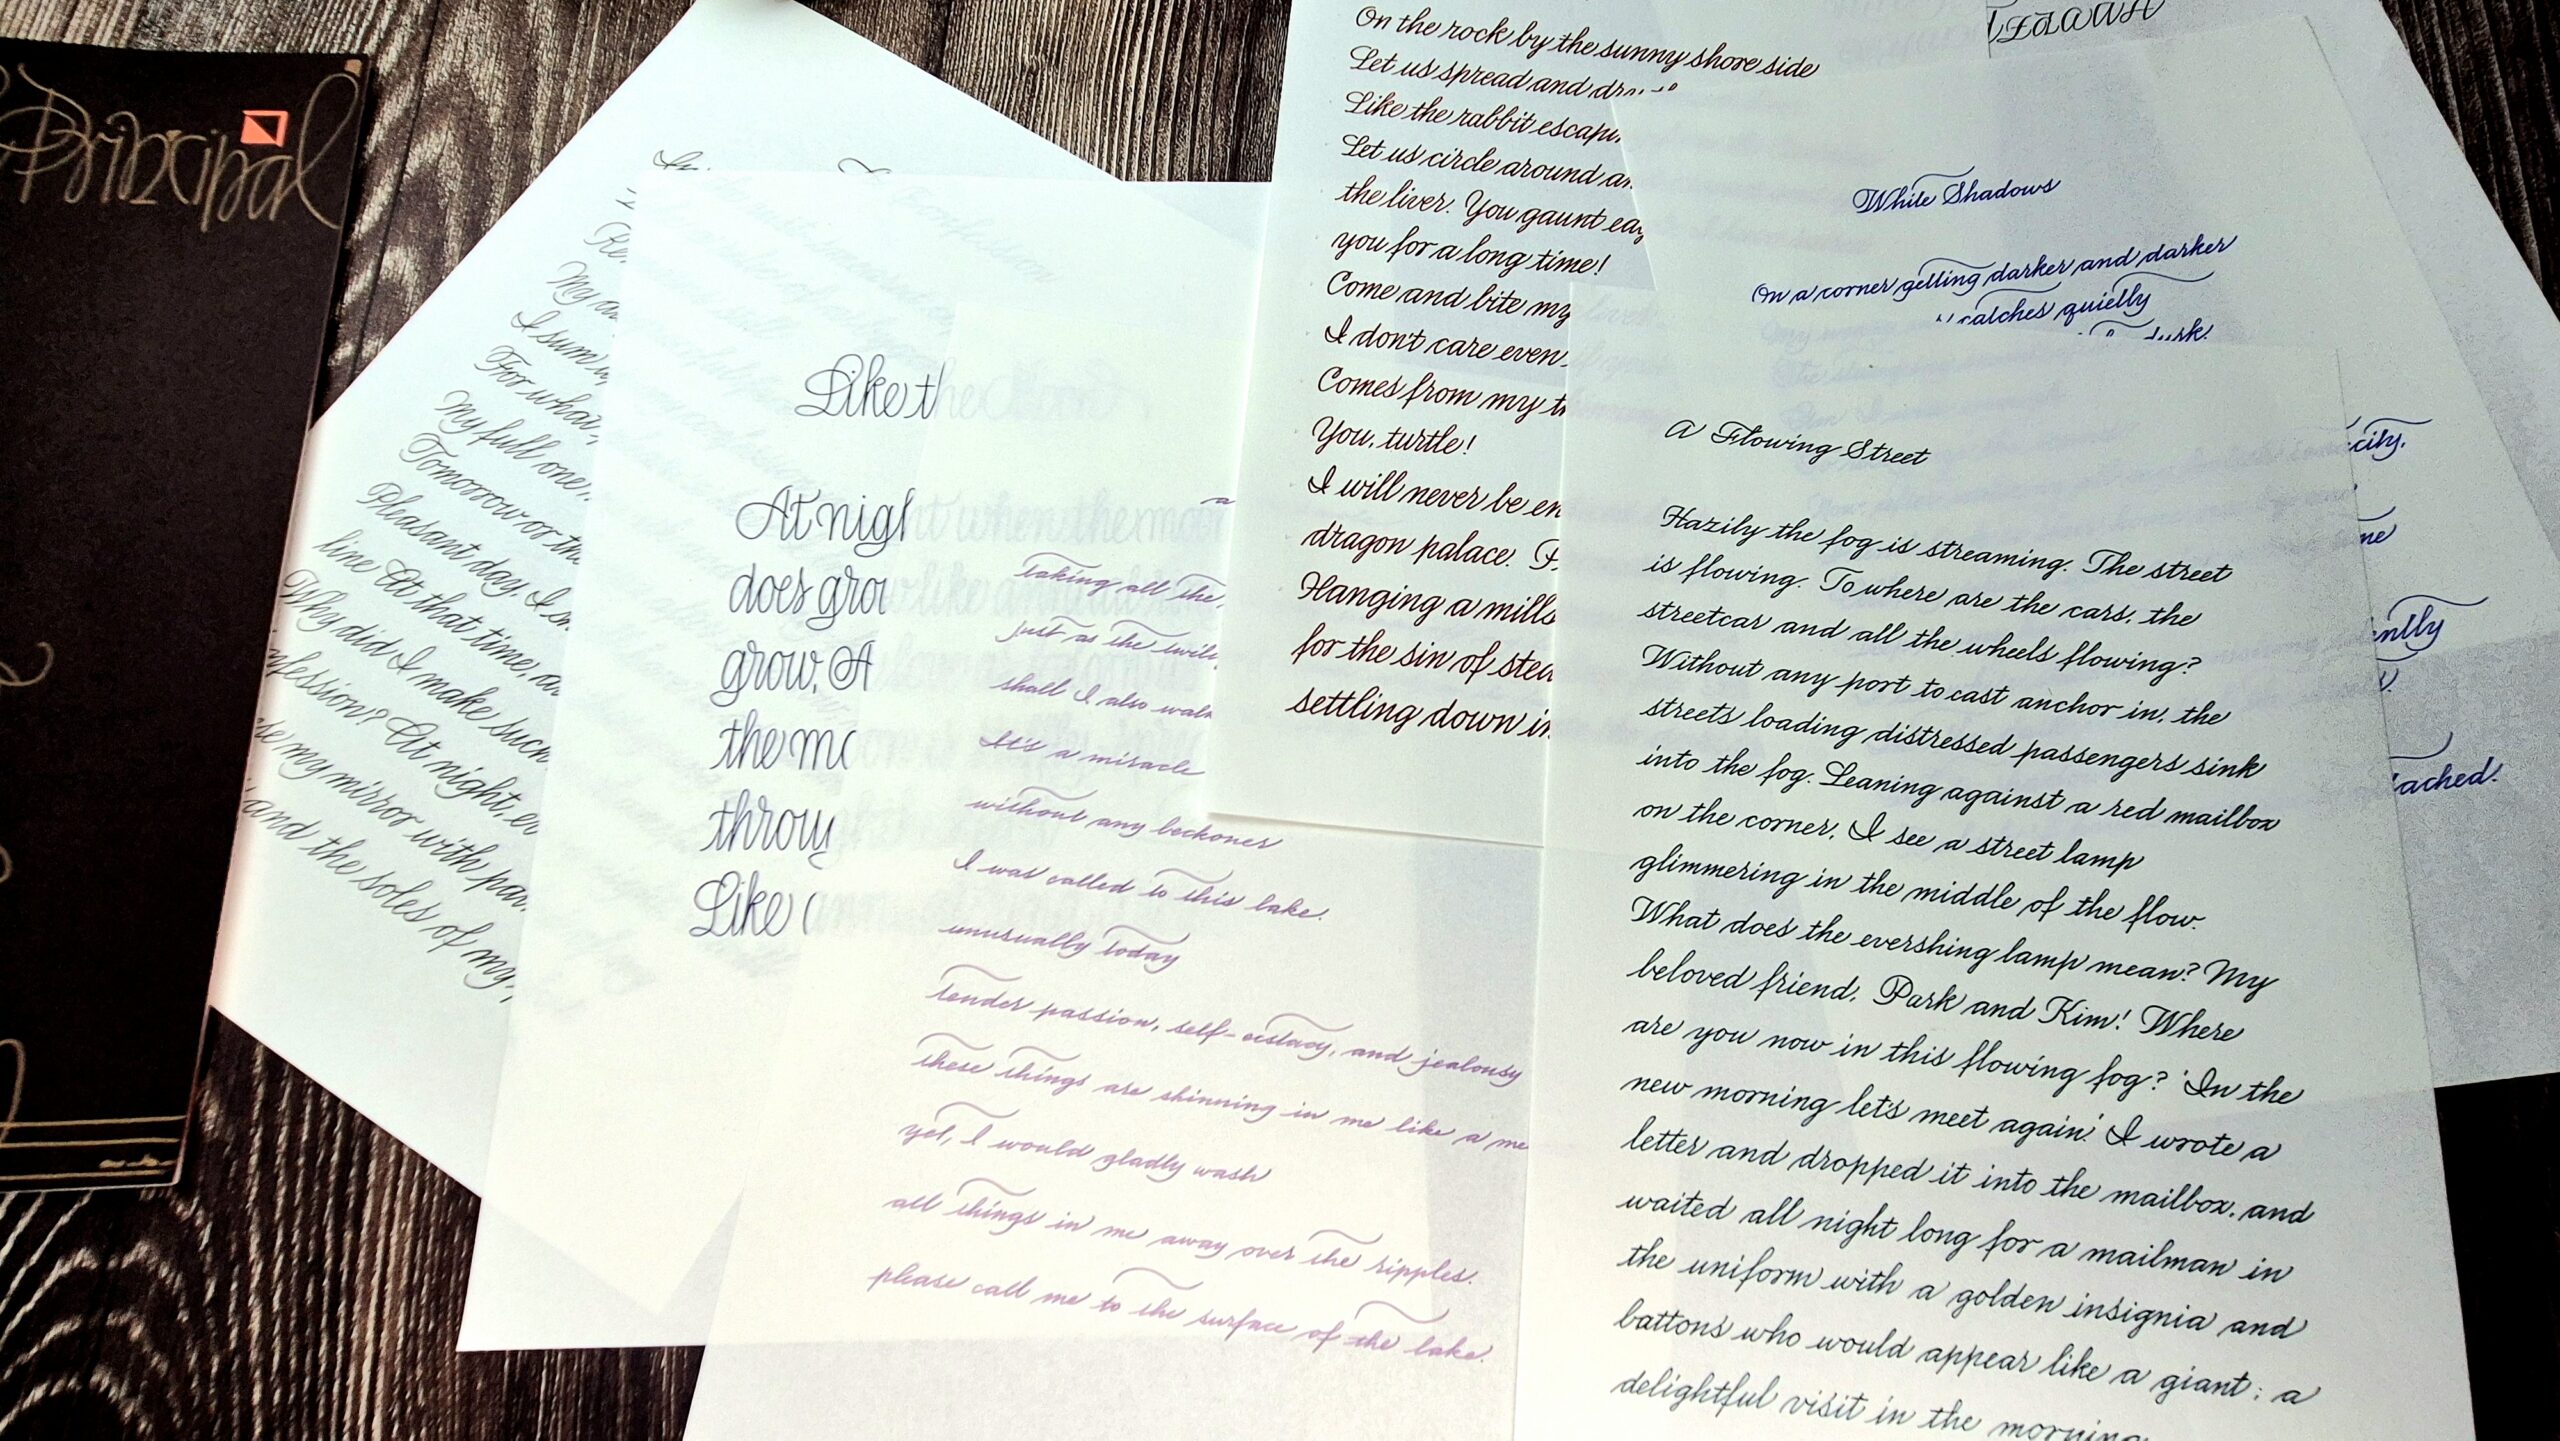 Principal
My
I
For
My full one
Tomorrow or the
Pleasant day, I
line At that time,
Why did I make such
confession? At night,
my mirror with
and the soles of my
Like the
At night when the moon
does grow like
grow. A
the
through
Like
taking all the
just as the
shall I also walk
It's a miracle
without any beckoner
I was called to this lake.
unusually today
tender passion, self-ecstacy, and jealousy
these things are shinning in me like a
yet, I would gladly wash
all things in me away over the ripples.
please call me to the surface of the lake.
On the rock by the sunny shore side
Let us spread and
Like the rabbit
Let us circle around
the liver. You gaunt
you for a long time!
Come and bite my
I don't care even
Comes from my
You, turtle!
I will never be
dragon palace.
Hanging a
for the sin of
settling down in
White Shadows
On a corner getting darker and darker
quietly
city.
ached.
A Flowing Street
Hazily the fog is streaming. The street
is flowing. To where are the cars, the
streetcar and all the wheels flowing?
Without any port to cast anchor in, the
streets loading distressed passengers sink
into the fog. Leaning against a red mailbox
on the corner, I see a street lamp
glimmering in the middle of the flow.
What does the evershing lamp mean? My
beloved friend, Park and Kim! Where
are you now in this flowing fog? 'In the
new morning let's meet again.' I wrote a
letter and dropped it into the mailbox, and
waited all night long for a mailman in
the uniform with a golden insignia and
battons who would appear like a giant; a
delightful visit in the morning